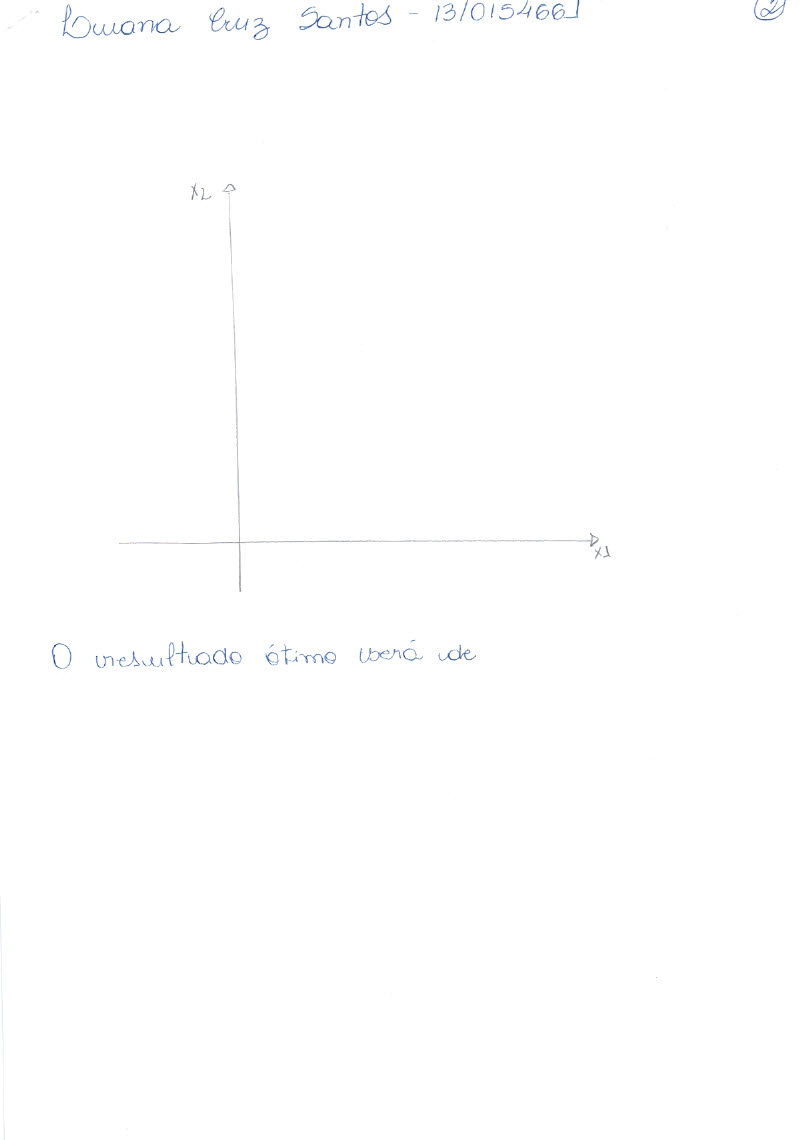 Luana Cruz Santos - 13/0154661
2
x2
x1
O resultado ótimo será de